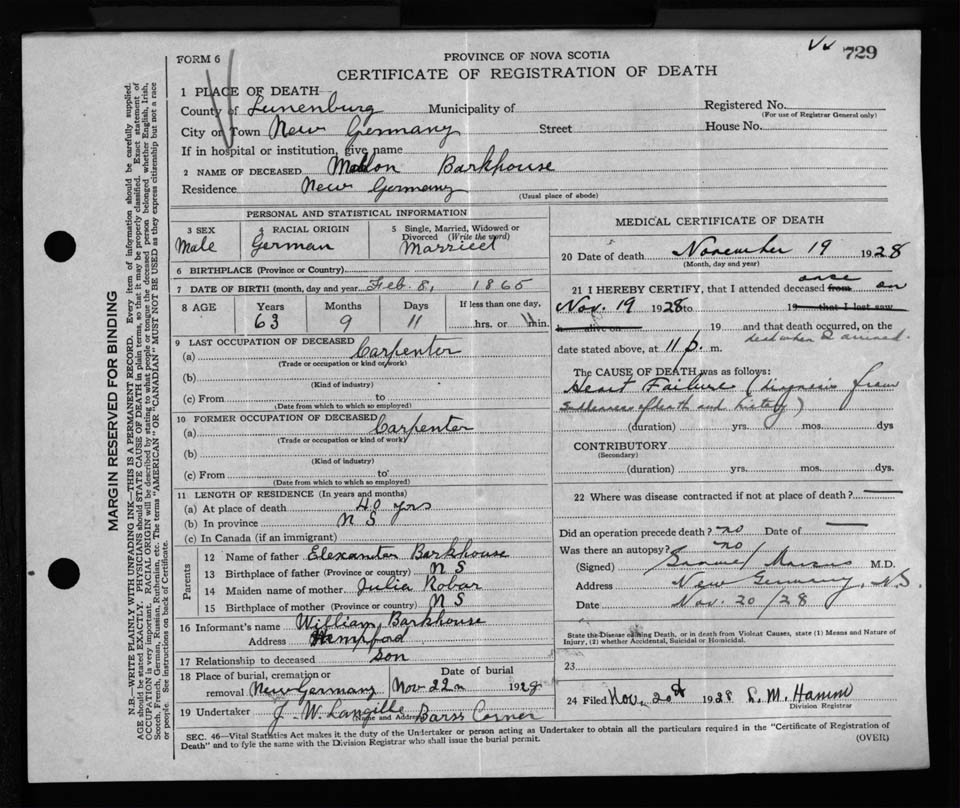 729
FORM 6
PROVINCE OF NOVA SCOTIA
CERTIFICATE OF REGISTRATION OF DEATH
1 PLACE OF DEATH
County of Lunenburg Municipality of Registered No.
(For use of Registrar General only)
City or Town New Germany Street House No.
If in hospital or institution, give name
2 NAME OF DECEASED Barkhouse
Residence New Germany
(Usual place of abode)
PERSONAL AND STATISTICAL INFORMATION
3 SEX Male
4 RACIAL ORIGIN German
5 Single, Married, Widowed or Divorced (Write the word) Married
6 BIRTHPLACE (Province or Country)
7 DATE OF BIRTH (month, day and year) Feb. 8, 1865
8 AGE Years Months Days If less than one day,
63 9 11 hrs. or min.
9 LAST OCCUPATION OF DECEASED
(a) Carpenter
(Trade or occupation or kind of work)
(b)
(Kind of industry)
(c) From to
(Date from which to which so employed)
10 FORMER OCCUPATION OF DECEASED
(a) Carpenter
(Trade or occupation or kind of work)
(b)
(Kind of industry)
(c) From to
(Date from which to which so employed)
11 LENGTH OF RESIDENCE (In years and months)
(a) At place of death 40 yrs
(b) In province N S
(c) In Canada (if an immigrant)
Parents
12 Name of father Elexander Barkhouse
13 Birthplace of father (Province or country) N S
14 Maiden name of mother Julia Robar
15 Birthplace of mother (Province or country) N S
16 Informant's name William Barkhouse
Address Hemford
17 Relationship to deceased son
18 Place of burial, cremation or removal New Germany
Date of burial Nov 22 1928
19 Undertaker J. W. Langille Barss Corner
(Name and Address)
MEDICAL CERTIFICATE OF DEATH
20 Date of death November 19 1928
(Month, day and year)
21 I HEREBY CERTIFY, that I attended deceased from once on
Nov. 19 1928 to 19 that I last saw
h alive on 19 and that death occurred, on the
dead when I arrived.
date stated above, at 11 p. m.
The CAUSE OF DEATH was as follows:
Heart Failure (diagnosis from
suddenness of death and history)
(duration) yrs. mos. dys
CONTRIBUTORY
(Secondary)
(duration) yrs. mos. dys.
22 Where was disease contracted if not at place of death?
Did an operation precede death? no Date of
Was there an autopsy? no
(Signed) M.D.
Address New Germany, N.S.
Date Nov. 20/28
State the Disease causing Death, or in death from Violent Causes, state (1) Means and Nature of
Injury, (2) whether Accidental, Suicidal or Homicidal.
23
24 Filed Nov. 20th 1928 L. M. Hamm
Division Registrar
SEC. 46—Vital Statistics Act makes it the duty of the Undertaker or person acting as Undertaker to obtain all the particulars required in the "Certificate of Registration of
Death" and to fyle the same with the Division Registrar who shall issue the burial permit.
(OVER)
MARGIN RESERVED FOR BINDING
N.B.—WRITE PLAINLY WITH UNFADING INK—THIS IS A PERMANENT RECORD. Every item of information should be carefully supplied.
AGE should be stated EXACTLY. PHYSICIANS should STATE CAUSE OF DEATH in plain terms, so that it may be properly classified. Exact statement of
OCCUPATION is very important. RACIAL ORIGIN will be described by stating to what people or tongue the deceased person belonged whether English, Irish,
Scotch, French, German, Russian, Ruthenian, etc. The terms "AMERICAN" OR "CANADIAN" MUST NOT BE USED as they express citizenship but not a race
or people. See instructions on back of Certificate.